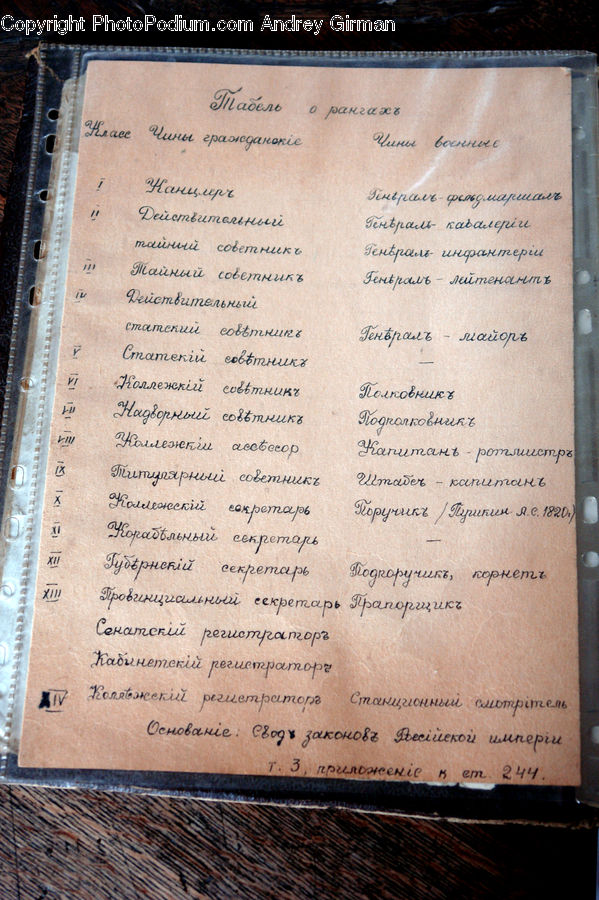 Copyright PhotoPodium.com Andrey Girman
Табель о рангахъ
Класс Чины гражданскіе Чины военные
I Канцлеръ Генѣралъ-фельдмаршалъ
II Действительный Генѣралъ-кавалеріи
тайный советникъ Генѣралъ-инфантеріи
III Тайный советникъ Генѣралъ-лейтенантъ
IV Действительный
статский совѣтникъ Генѣралъ-майоръ
V Статскій совѣтникъ —
VI Коллежскій совѣтникъ Полковникъ
VII Надворный совѣтникъ Подполковникъ
VIII Коллежскій асовесор Капитанъ-ротмистръ
IX Титулярный советникъ Штабсъ-капитанъ
X Коллежскій секретарь Поручикъ /Пушкин А.С. 1820г)
XI Корабѣльный секретарь —
XII Губѣрнскій секретарь Подпоручикъ, корнетъ
XIII Провинциальный секретарь Прапорщикъ
Сенатскій регистраторъ
Кабинетскій регистраторъ
XIV Колежскій регистраторъ Станционный смотрітель
Основаніе: Сводъ законовъ Россійской империи
т. 3, приложеніе к ст. 244.